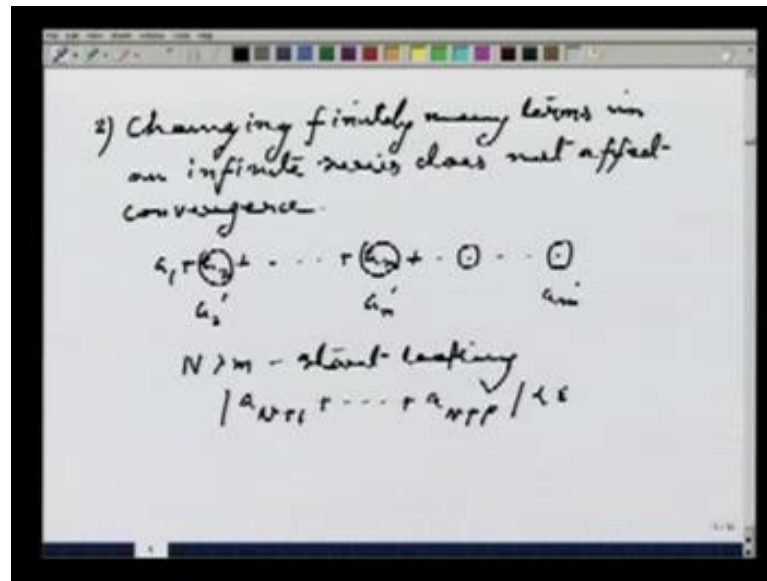 2) Changing finitely many terms in
an infinite series does not affect
convergence.
a₁ + a₂ + ..... + aₙ + . . . . .
a₂' aₙ' aₘ'
N > m - start looking
| a_{N+1} + .... + a_{N+p} | < ε